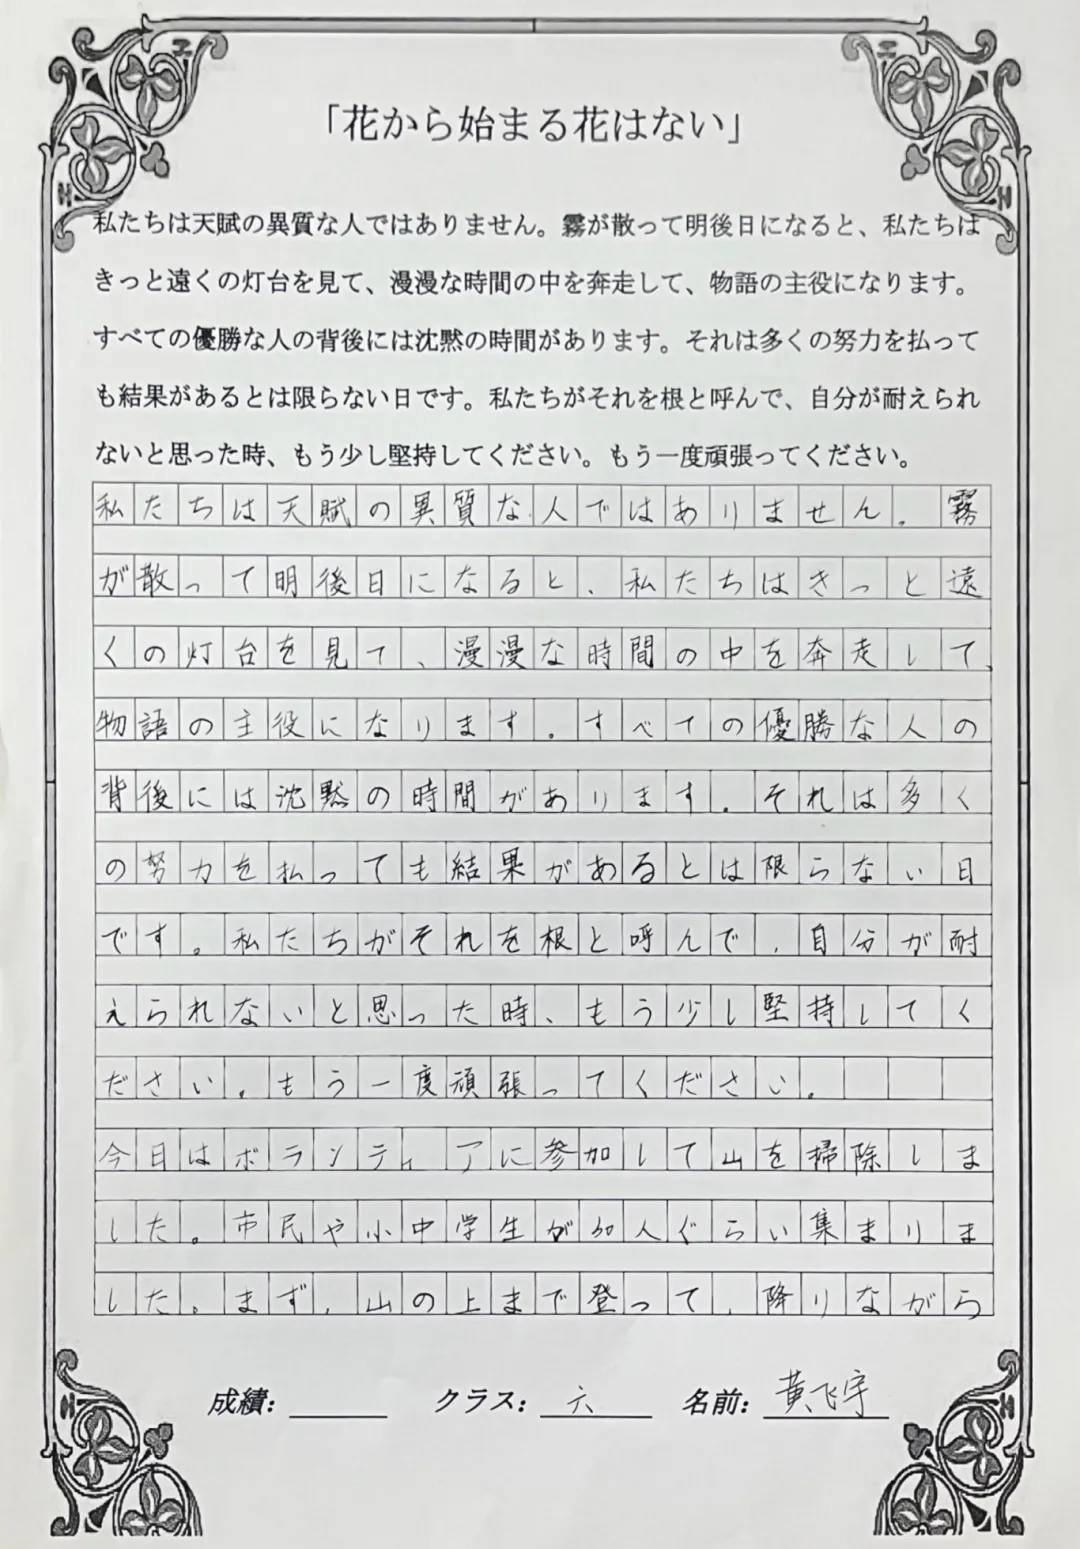 「花から始まる花はない」
私たちは天賦の異質な人ではありません。霧が散って明後日になると、私たちは
きっと遠くの灯台を見て、漫漫な時間の中を奔走して、物語の主役になります。
すべての優勝な人の背後には沈黙の時間があります。それは多くの努力を払って
も結果があるとは限らない日です。私たちがそれを根と呼んで、自分が耐えられ
ないと思った時、もう少し堅持してください。もう一度頑張ってください。
私たちは天賦の異質な人ではありません。霧
が散って明後日になると、私たちはきっと遠
くの灯台を見て、漫漫な時間の中を奔走して、
物語の主役になります。すべての優勝な人の
背後には沈黙の時間があります。それは多く
の努力を払っても結果があるとは限らない日
です。私たちがそれを根と呼んで、自分が耐
えられないと思った時、もう少し堅持してく
ださい。もう一度頑張ってください。
今日はボランティアに参加して山を掃除しま
した。市民や小中学生が30人ぐらい集まりま
した。まず、山の上まで登って、降りながら
成績: クラス: 六 名前: 黄飞宇